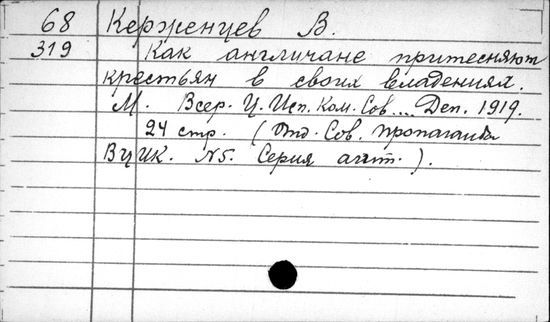 68 Керженцев В.
319 Как англичане притесняют
крестьян в своих владениях.
М. Всер. Ц. Исп. Ком. Сов.... Деп. 1919.
24 стр. (Отд. Сов. пропаганды
ВЦИК. №5. Серия агит.).